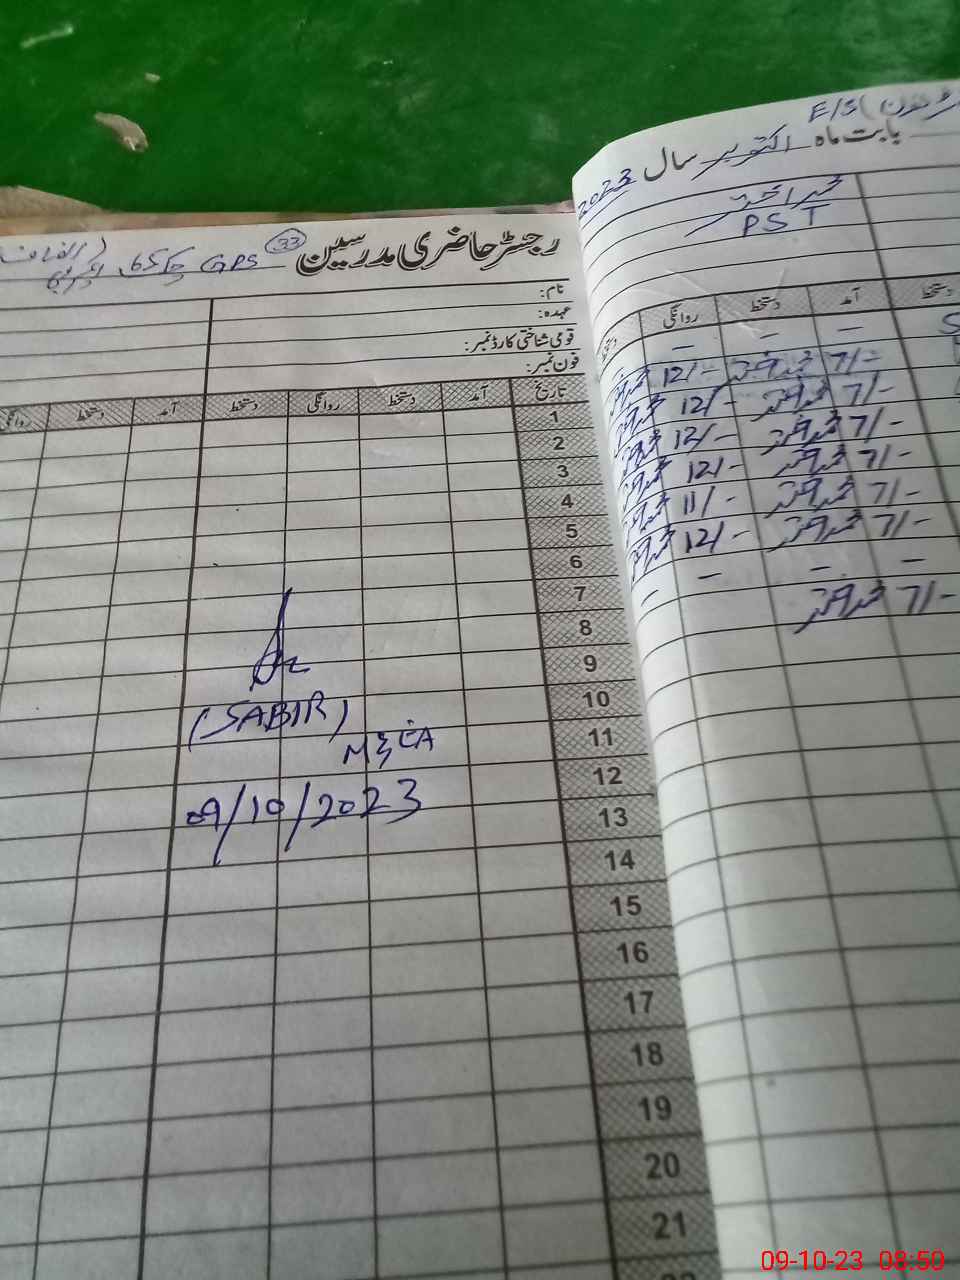 E/S
بابت ماہ اکتوبر سال 2023
محمد اختر
PST
دستخط آمد دستخط روانگی دستخط
— — —
7/- محمد اختر 12/- محمد اختر
7/- محمد اختر 12/- محمد اختر
7/- محمد اختر 12/- محمد اختر
7/- محمد اختر 12/- محمد اختر
7/- محمد اختر 11/- محمد اختر
7/- محمد اختر 12/- محمد اختر
— — — —
7/- محمد اختر
رجسٹر حاضری مدرسین
33
GPS چک 65
نام:
عہدہ:
قومی شناختی کارڈ نمبر:
فون نمبر:
تاریخ آمد دستخط روانگی دستخط آمد دستخط روانگی
1
2
3
4
5
6
7
8
9
10
11
12
13
14
15
16
17
18
19
20
21
(SABIR)
M&EA
09/10/2023
09-10-23 08:50